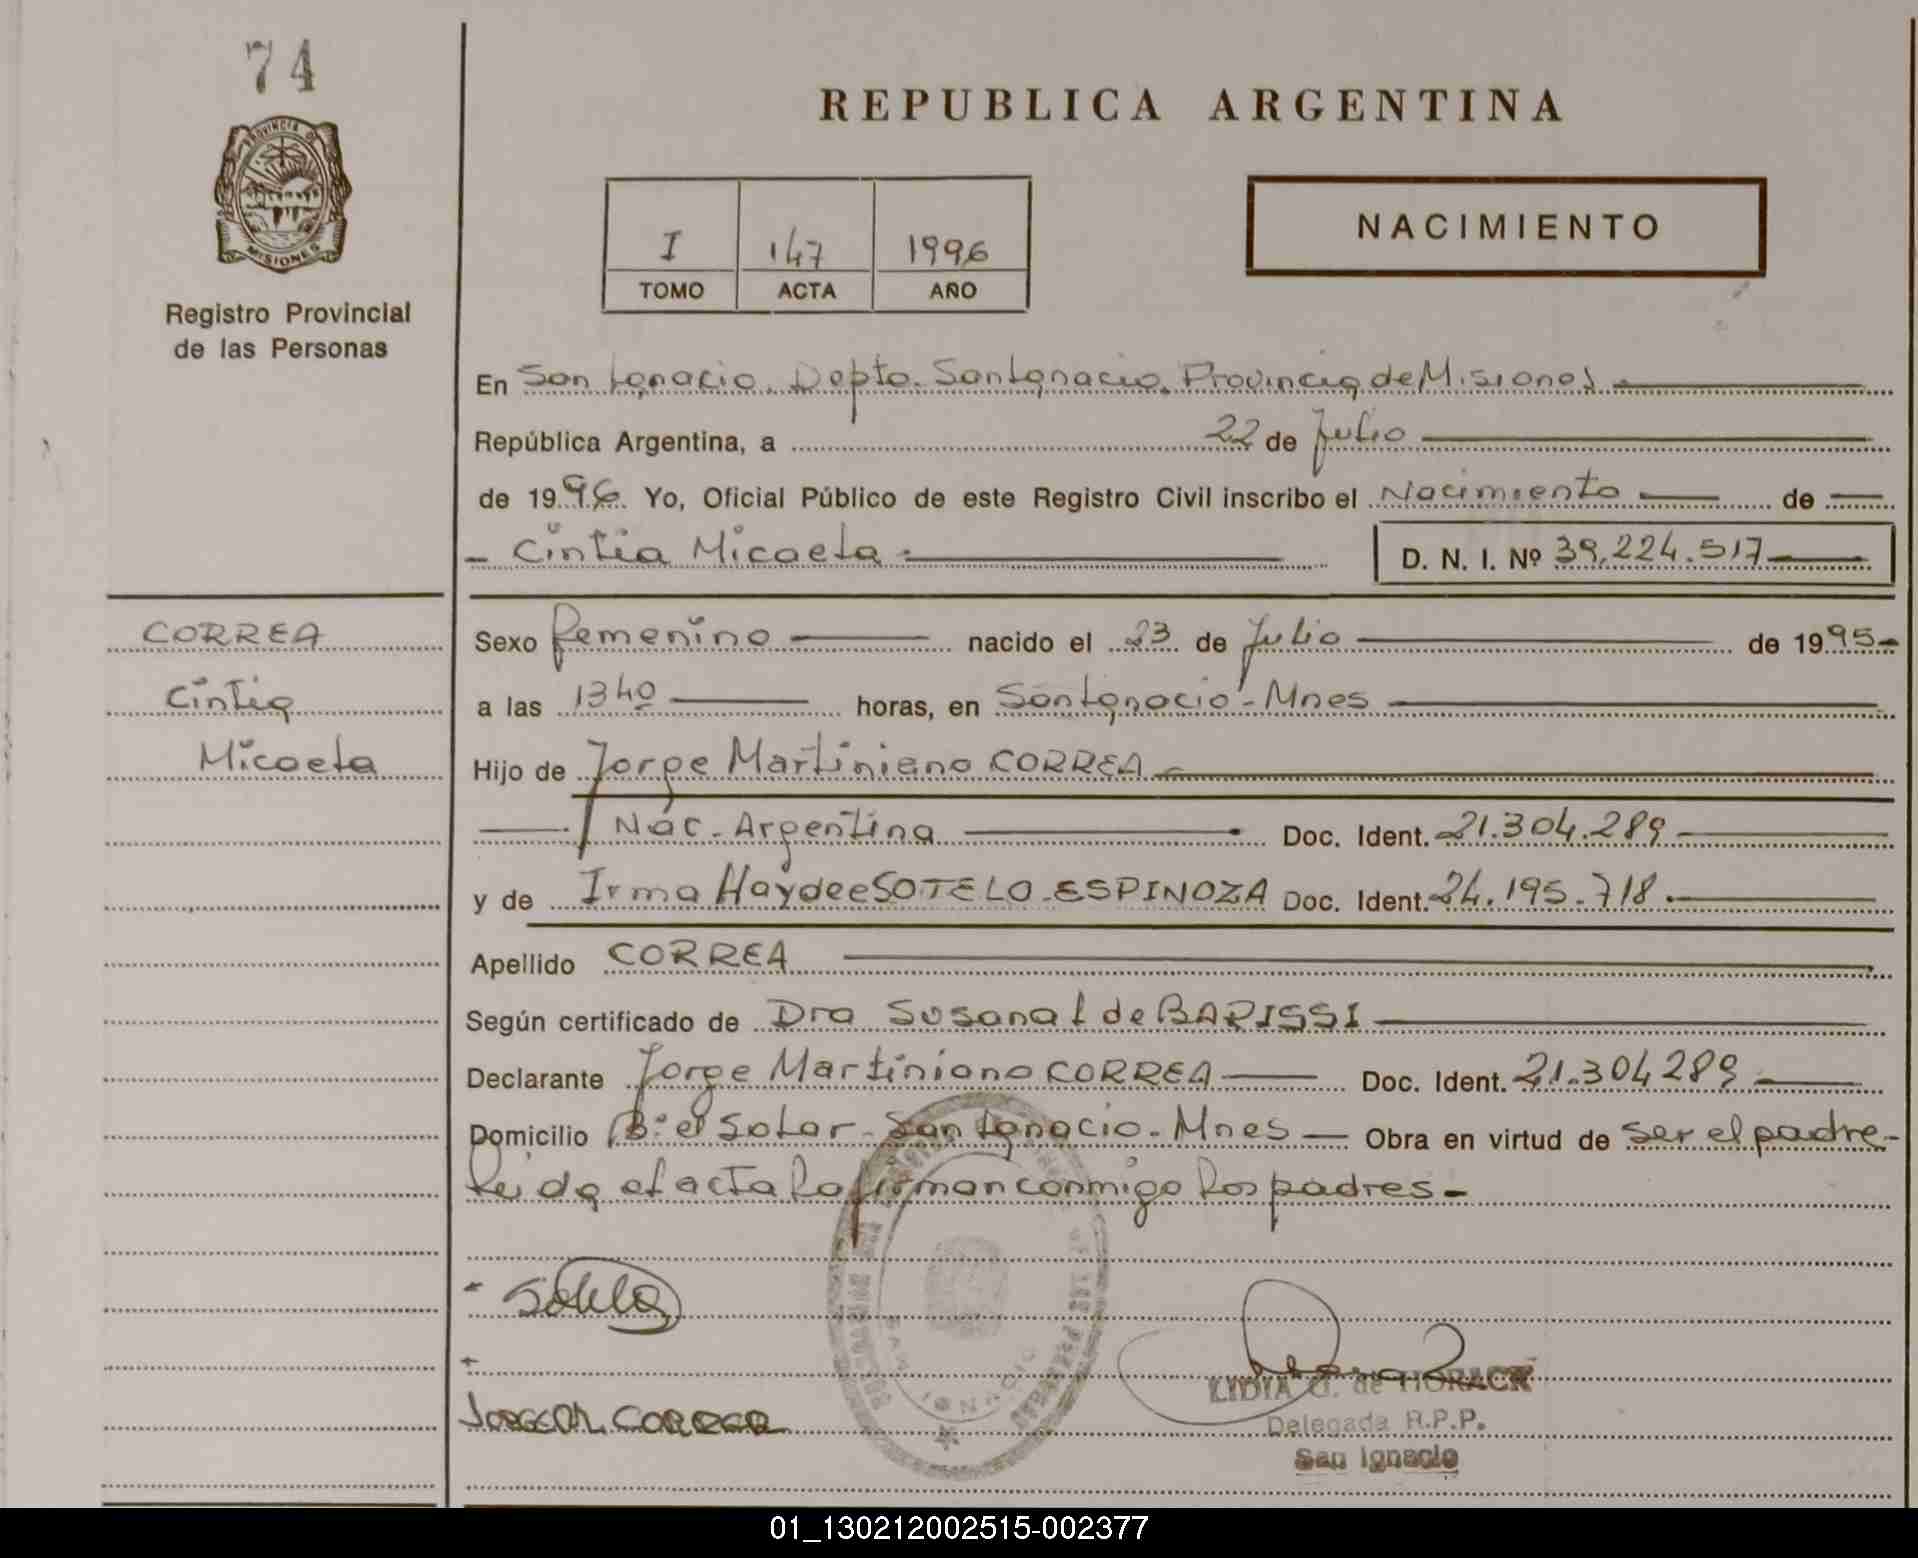 74
REPUBLICA ARGENTINA
PROVINCIA DE
MISIONES
Registro Provincial
de las Personas
I 147 1996
TOMO ACTA AÑO
NACIMIENTO
En San Ignacio. Depto. San Ignacio. Provincia de Misiones
República Argentina, a 22 de Julio
de 1996. Yo, Oficial Público de este Registro Civil inscribo el Nacimiento de
- Cintia Micaela.
D. N. I. Nº 39.224.517
CORREA
Cintia
Micaela
Sexo femenino nacido el 23 de Julio de 1995-
a las 13 40 horas, en San Ignacio - Mnes
Hijo de Jorge Martiniano CORREA
Nac. Argentina Doc. Ident. 21.304.289
y de Irma Haydee SOTELO ESPINOZA Doc. Ident. 24.195.718.
Apellido CORREA
Según certificado de Dra Susana de BARISSI
Declarante Jorge Martiniano CORREA Doc. Ident. 21.304289
Domicilio Bº el Solar - San Ignacio - Mnes Obra en virtud de ser el padre-
Leida el acta la firman conmigo los padres-
JORGE M. CORREA
LIDIA G. de HORACK
Delegada R.P.P.
San Ignacio
SAN IGNACIO
01_130212002515-002377